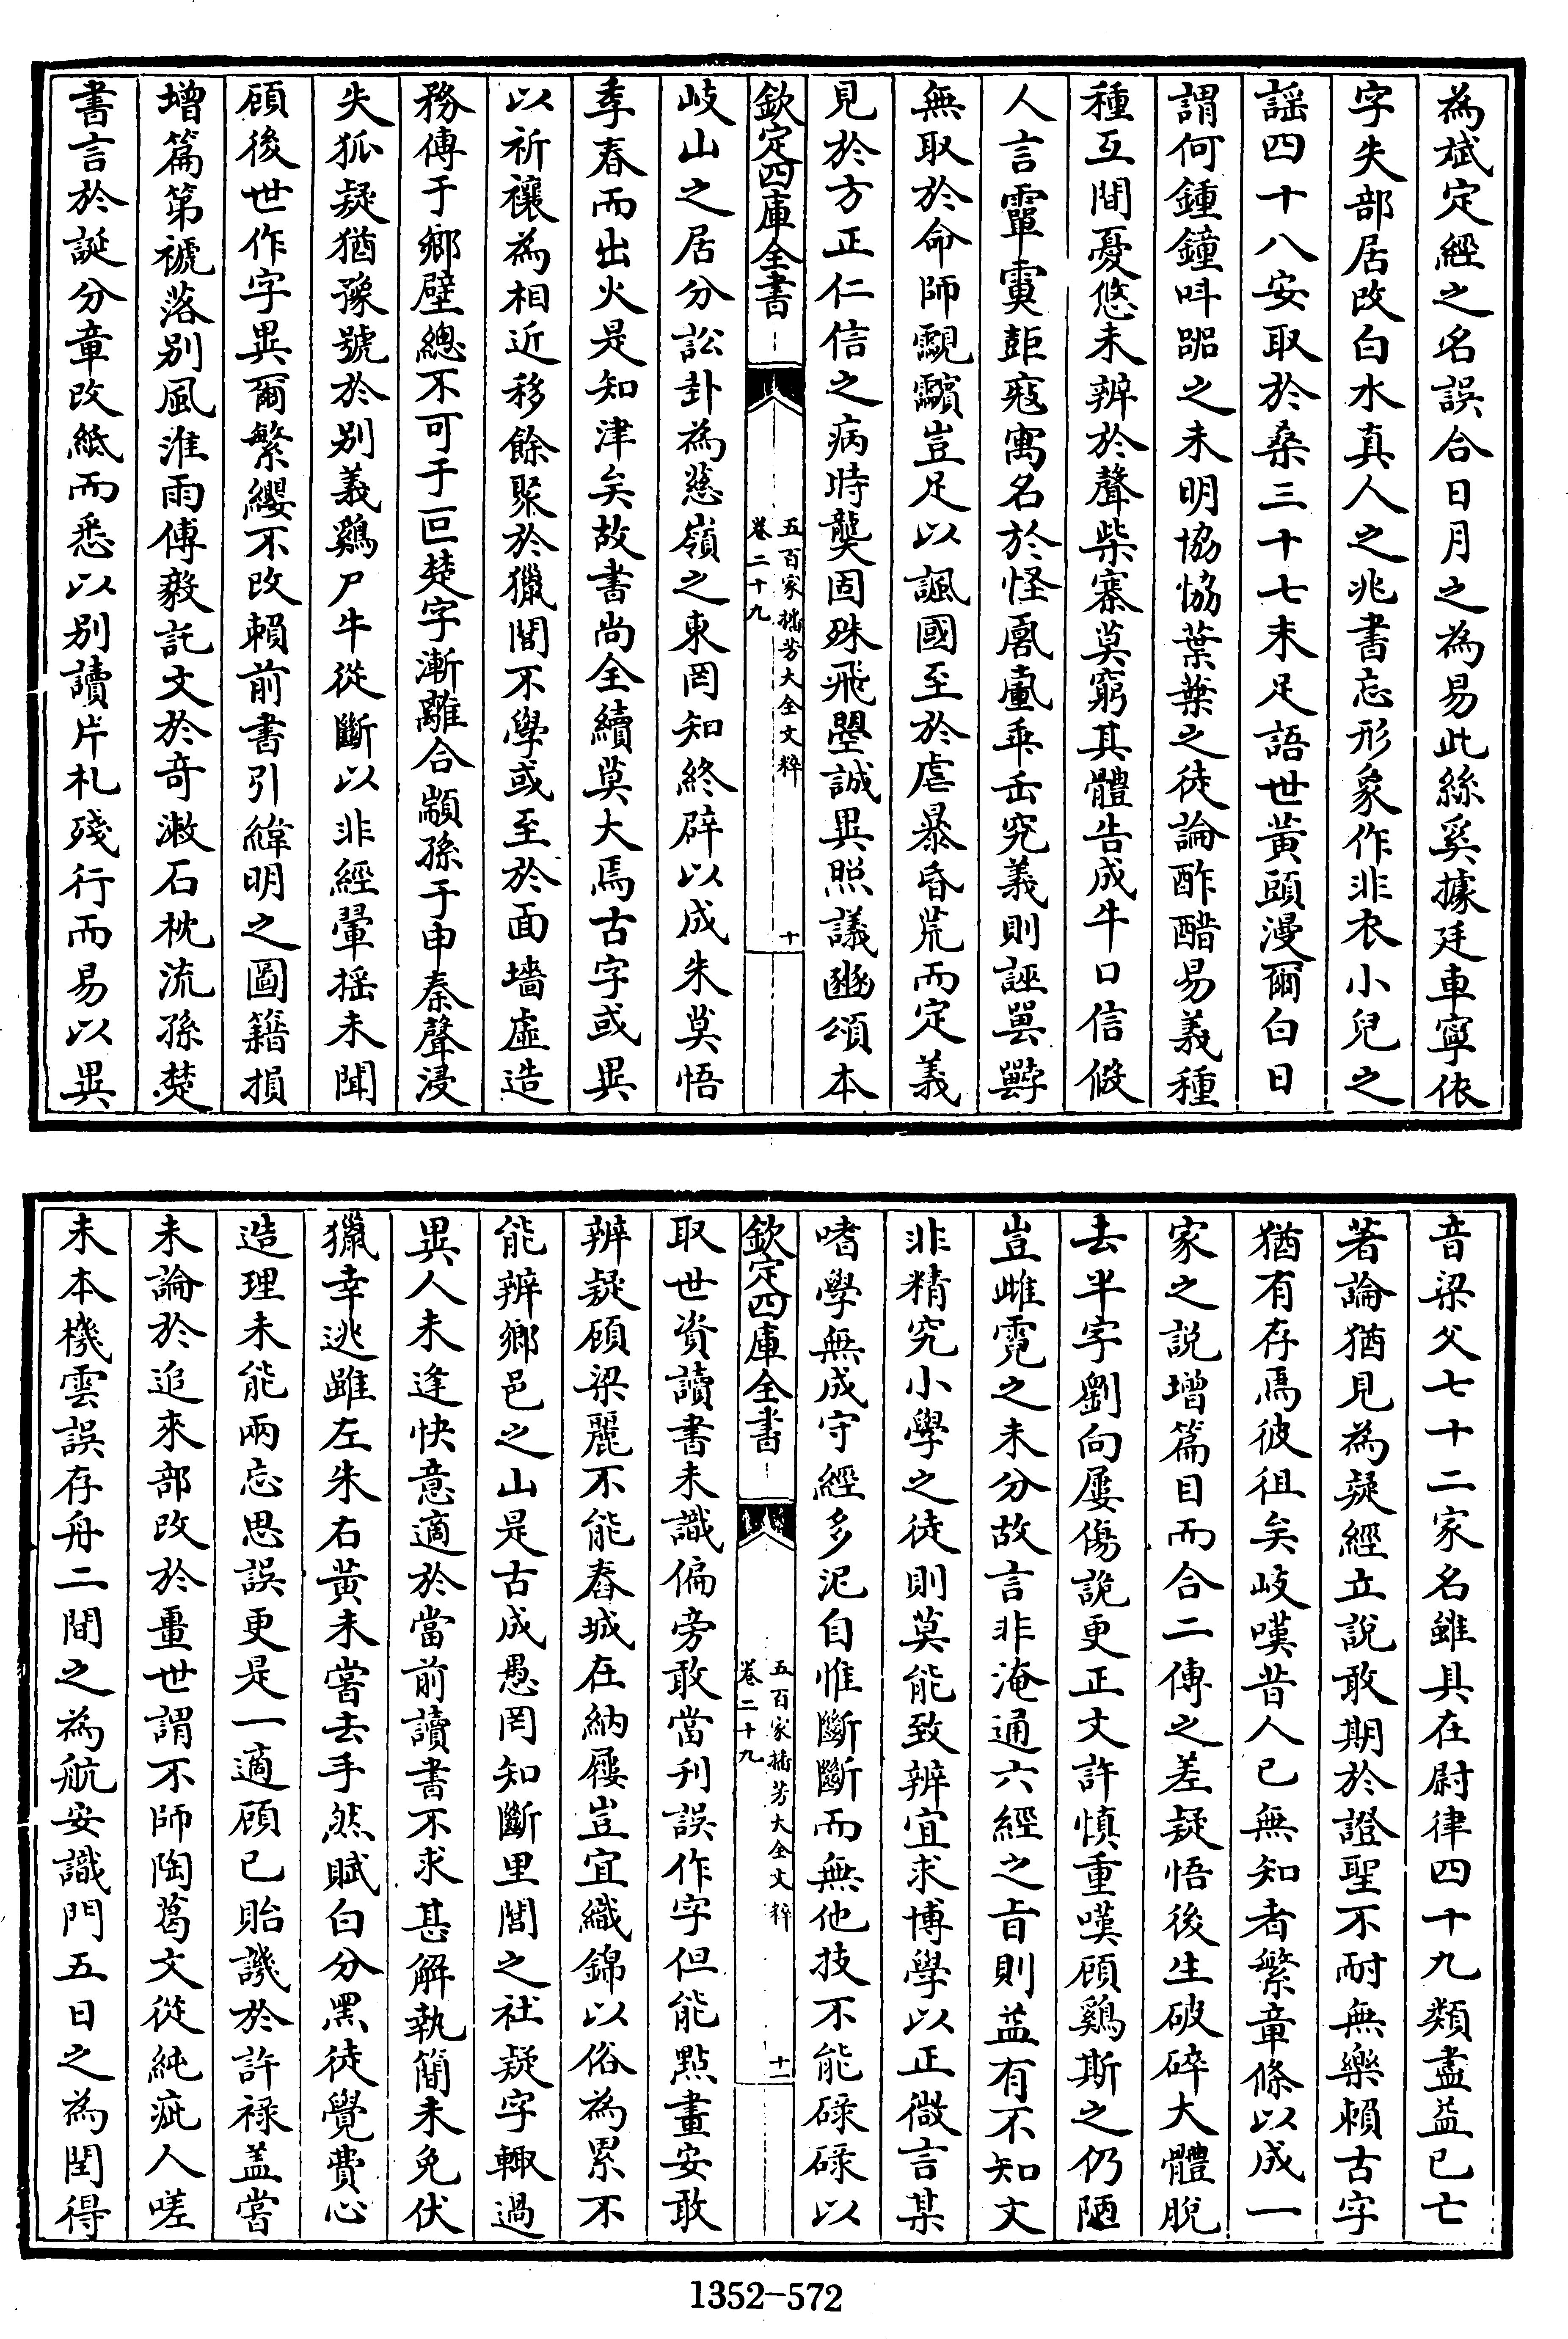 為斌定經之名誤合日月之為易此絲奚據廷車寧依
字失部居改白水真人之兆書忘形象作非衣小兒之
謡四十八安取於桑三十七未足語世黃頭漫爾白日
謂何鍾鐘呌㗊之未明協恊葉葉之徒論酢醋易義種
種互間憂悠未辨於聲柴寨莫窮其體告成牛口信伇
人言霣彭寇寓名於怪乗缶究義則誣
無取於命師豈足以諷國至於虐暴昏荒而定義
見於方正仁信之病時龔固殊飛誠異照議豳頌本
欽定四庫全書
五百家播芳大全文粹
卷二十九
十
岐山之居分訟卦為慈嶺之東罔知終辟以成朱莫悟
季春而出火是知津矣故書尚全續莫大焉古字或異
以祈禳為相近移餘聚於獵閻不學或至於面墻虛造
務傅于鄉壁總不可于叵楚字漸離合顓孫于申秦聲浸
失狐疑猶豫號於别義鷄尸牛從斷以非經翬摇未聞
顧後世作字異爾繁纓不改賴前書引緯明之圖籍損
增篇第褫落别風淮雨傅毅託文於奇漱石枕流孫楚
書言於誕分章改紙而悉以别讀片札殘行而易以異
音梁父七十二家名雖具在尉律四十九類盡益已亡
著論猶見為疑經立說敢期於證聖不耐無樂賴古字
猶有存焉彼徂矣岐嘆昔人已無知者繁章條以成一
家之説增篇目而合二傳之差疑悟後生破碎大體脫
去半字劉向屢傷詭更正文許慎重嘆顧鷄斯之仍陋
豈雌霓之未分故言非淹通六經之旨則益有不知文
非精究小學之徒則莫能致辨宜求博學以正微言某
嗜學無成守經多泥自惟斷斷而無他技不能碌碌以
欽定四庫全書
五百家播芳大全文粹
卷二十九
十一
取世資讀書未識偏旁敢當刋誤作字但能點畫安敢
辨疑顧梁麗不能舂城在納屨豈宜織錦以俗為累不
能辨鄉邑之山是古成愚罔知斷里閭之社疑字輙過
異人未逢快意適於當前讀書不求甚解執簡未免伏
獵幸逃雖左朱右黃未嘗去手然賦白分黑徒覺費心
造理未能兩忘思誤更是一適顧已貽譏於許祿盖嘗
未論於追來部改於畺世謂不師陶葛文從純疵人嗟
未本機雲誤存舟二間之為航安識門五日之為閏得
1352-572